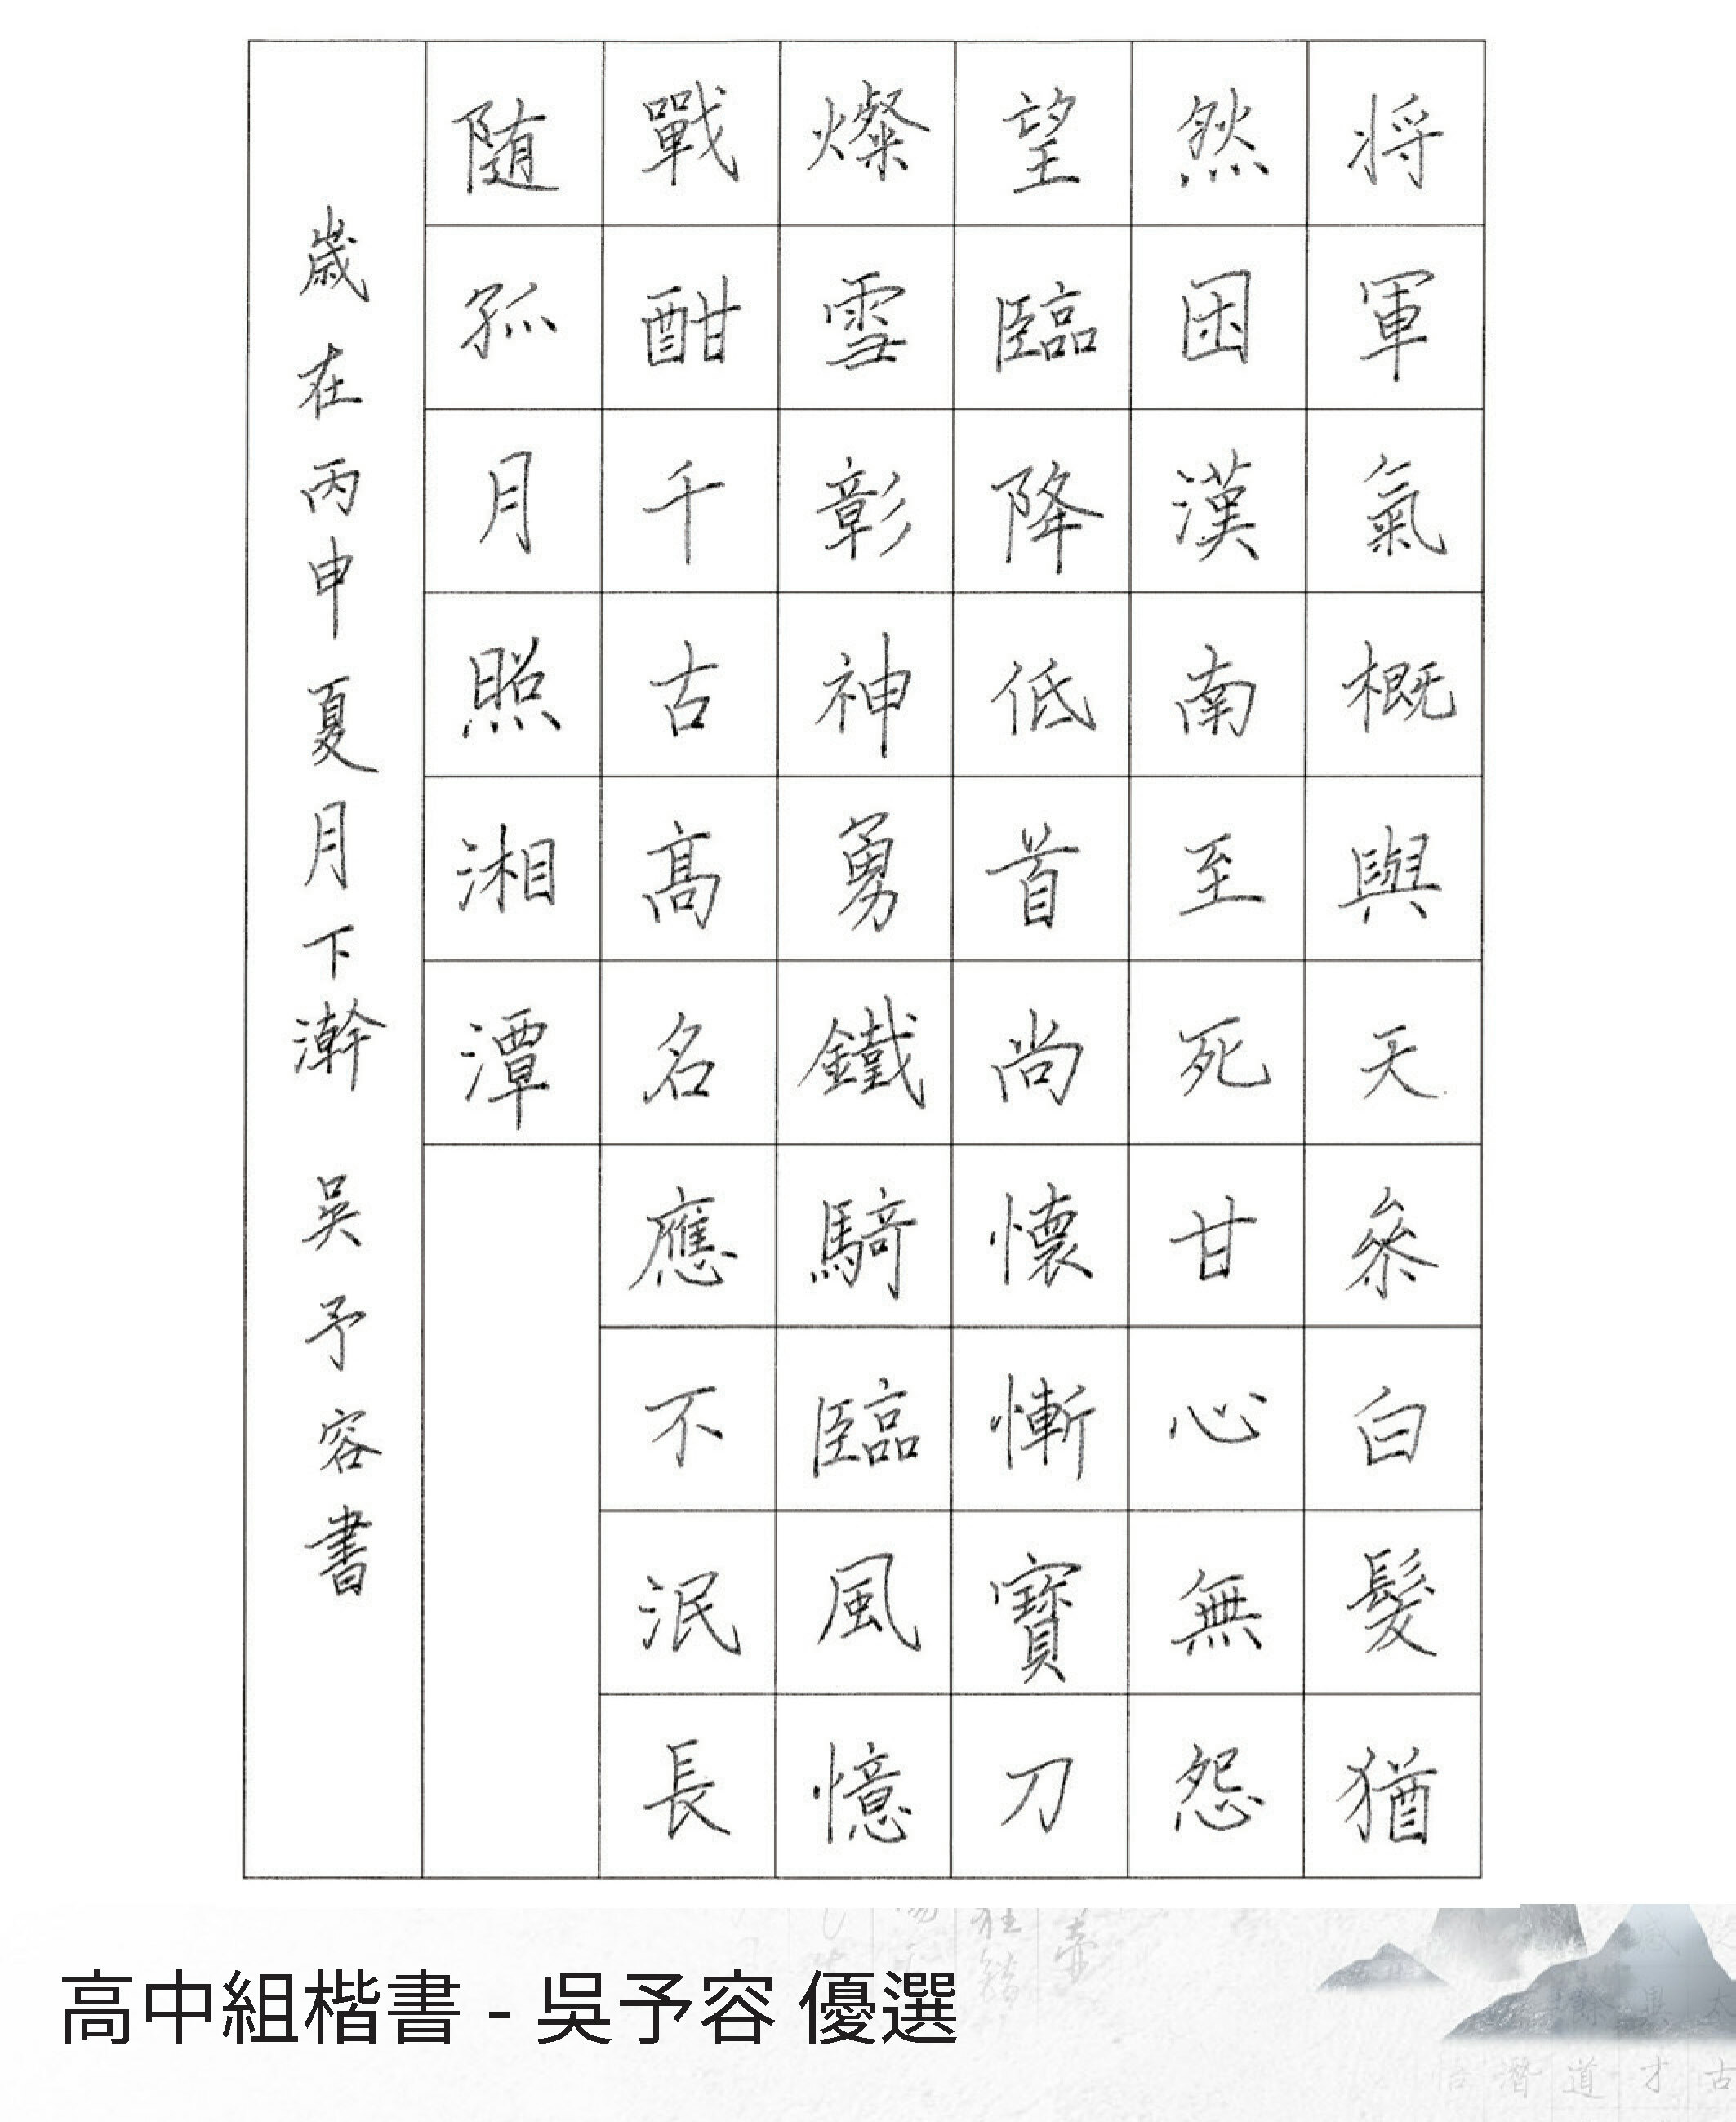 将軍氣概與天參白髮猶
然困漢南至死甘心無怨
望臨降低首尚懷慚寶刀
燦雪彰神勇鐵騎臨風憶
戰酣千古高名應不泯長
随孤月照湘潭
歲在丙申夏月下澣 吳予容書
高中組楷書 - 吳予容 優選